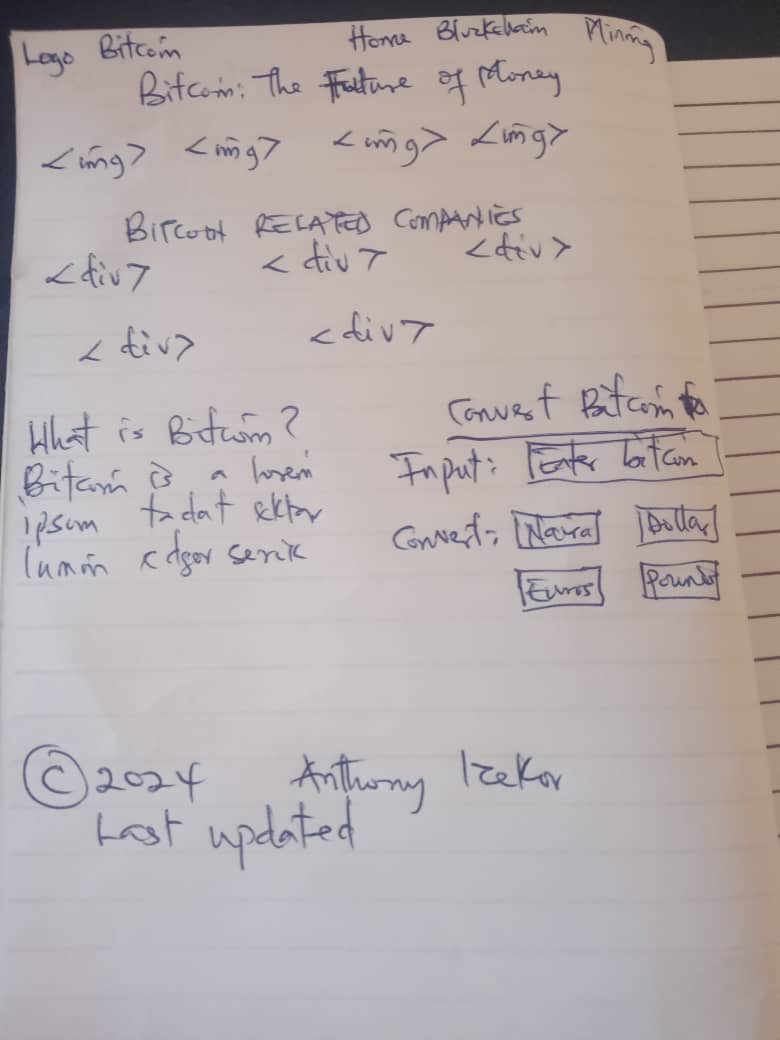 Logo Bitcoin Home Blockchain Mining
Bitcoin: The Future of Money
<img> <img> <img> <img>
BITCOIN RELATED COMPANIES
<div> <div> <div>
<div> <div>
What is Bitcoin?
Bitcoin is a lorem
ipsum
Convert Bitcoin to
Input: Enter bitcoin
Convert: Naira Dollar
Euros Pounds
© 2024 Anthony Izekor
Last updated